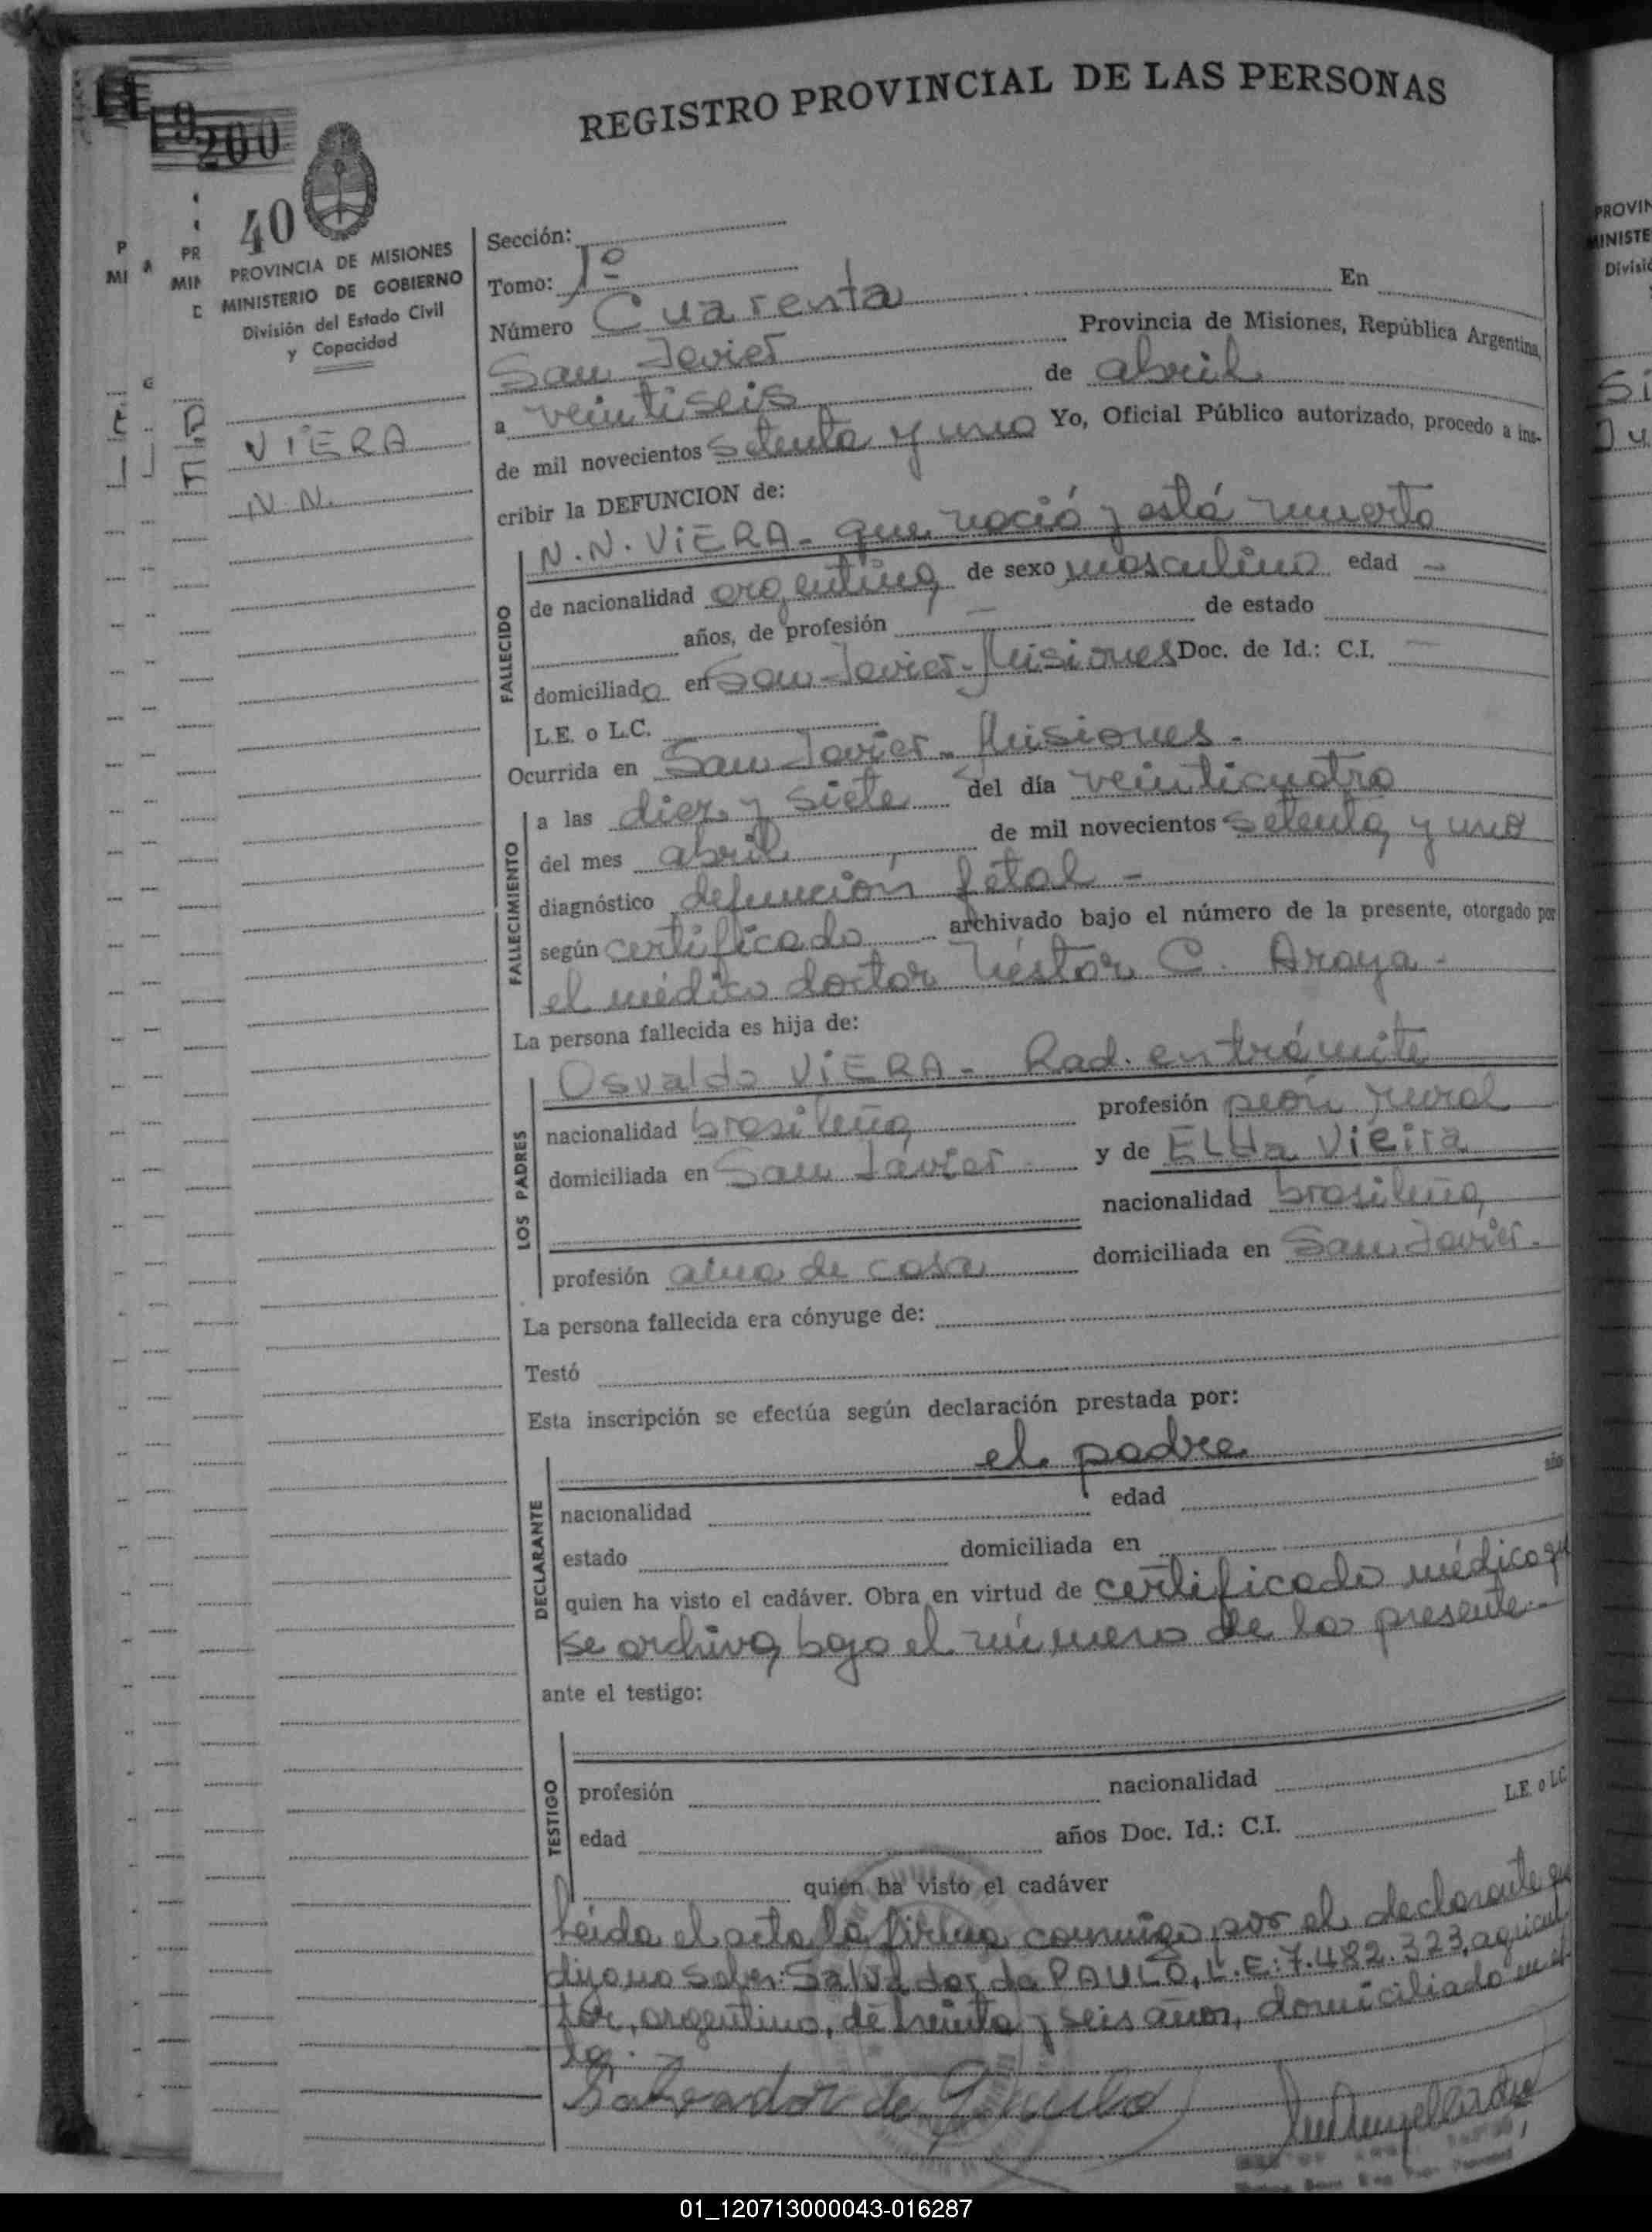 REGISTRO PROVINCIAL DE LAS PERSONAS
200
40
PROVINCIA DE MISIONES
MINISTERIO DE GOBIERNO
División del Estado Civil
y Capacidad
VIERA
N.N.
Sección:
Tomo: 1º
Número Cuarenta En
San Javier Provincia de Misiones, República Argentina,
a veintiseis de abril
de mil novecientos setenta y uno Yo, Oficial Público autorizado, procedo a ins-
cribir la DEFUNCION de:
N.N. VIERA - que nació y está muerto
FALLECIDO
de nacionalidad argentina de sexo masculino edad —
años, de profesión — de estado
domiciliado en San Javier - Misiones Doc. de Id.: C.I. —
L.E. o L.C.
Ocurrida en San Javier - Misiones -
FALLECIMIENTO
a las diez y siete del día veinticuatro
del mes abril de mil novecientos setenta y uno
diagnóstico defunción fetal -
según certificado archivado bajo el número de la presente, otorgado por
el médico doctor Néstor C. Araya -
La persona fallecida es hija de:
LOS PADRES
Osvaldo VIERA - Rad. en trámite
nacionalidad brasileña profesión peón rural
domiciliada en San Javier y de Elda Vieira
nacionalidad brasileña
profesión ama de casa domiciliada en San Javier -
La persona fallecida era cónyuge de:
Testó
Esta inscripción se efectúa según declaración prestada por:
DECLARANTE
el padre
nacionalidad edad año
estado domiciliada en
quien ha visto el cadáver. Obra en virtud de certificado médico qu
se archiva bajo el número de la presente -
ante el testigo:
TESTIGO
profesión nacionalidad
edad años Doc. Id.: C.I. L.E. o L.C.
quien ha visto el cadáver
Leída el acta la firma conmigo por el declarante que
dijo no saber: Salvador de PAULO, L.E: 7.482.323, agricul
tor, argentino, de treinta y seis años, domiciliado en es
ta. -
Salvador de Paulo
01_120713000043-016287